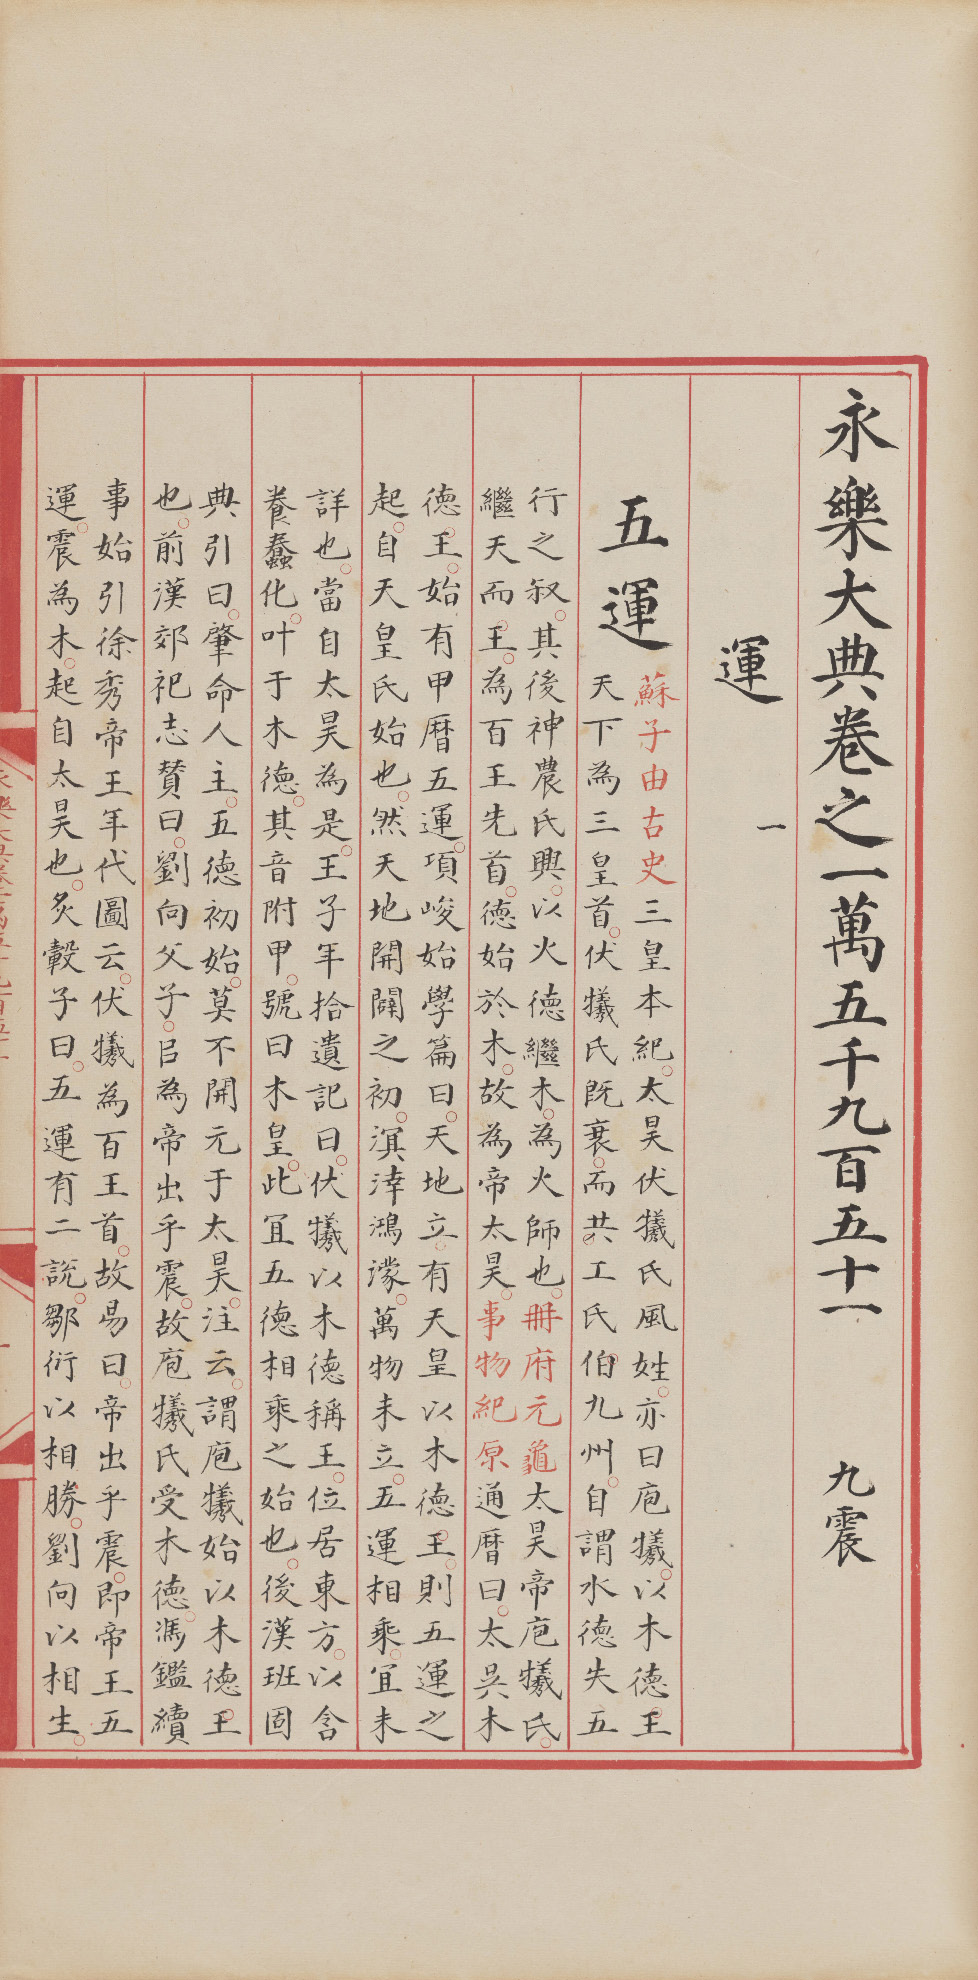 永樂大典卷之一萬五千九百五十一 九震
運 一
五運
蘇子由古史三皇本紀太昊伏犧氏風姓亦曰庖犧以木德王
天下為三皇首伏犧氏既衰而共工氏伯九州自謂水德失五
行之叙其後神農氏興以火德繼木為火師也冊府元龜太昊帝庖犧氏
繼天而王為百王先首德始於木故為帝太昊事物紀原通曆曰太昊木
德王始有甲曆五運項峻始學篇曰天地立有天皇以木德王則五運之
起自天皇氏始也然天地開闢之初溟涬鴻濛萬物未立五運相乘宜未
詳也當自太昊為是王子年拾遺記曰伏犧以木德稱王位居東方以含
養蠢化叶于木德其音附甲號曰木皇此宜五德相乘之始也後漢班固
典引曰肇命人主五德初始莫不開元于太昊注云謂庖犧始以木德王
也前漢郊祀志贊曰劉向父子㠯為帝出乎震故庖犧氏受木德馮鑑續
事始引徐秀帝王年代圖云伏犧為百王首故易曰帝出乎震即帝王五
運震為木起自太昊也炙轂子曰五運有二說鄒衍以相勝劉向以相生